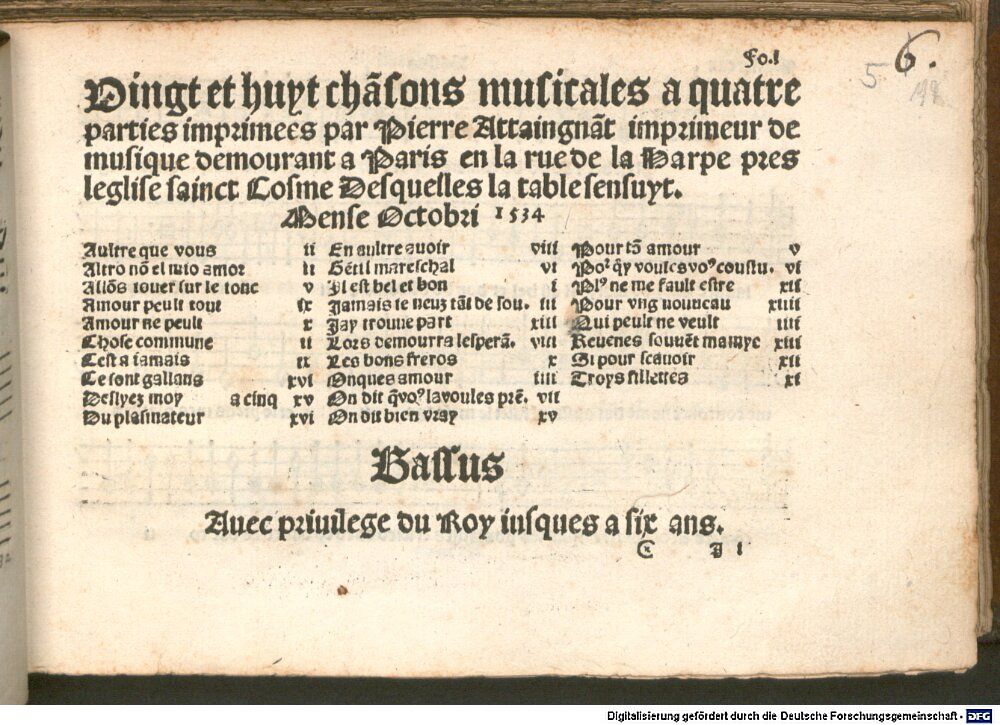 Fo.I
6.
5
198
Vingt et huyt chãsons musicales a quatre
parties imprimees par Pierre Attaingnãt imprimeur de
musique demourant a Paris en la rue de la Harpe pres
leglise sainct Cosme Desquelles la table sensuyt.
Mense Octobri 1534
Aultre que vous ii
Altro nõ el mio amor ii
Allõs iouer sur le ionc v
Amour peult tout ix
Amour ne peult x
Chose commune ii
Cest a iamais ix
Ce sont gallans xvi
Deslyez moy a cinq xv
Du plasmateur xvi
En aultre auoir viii
Gẽtil mareschal vi
Il est bel et bon i
Jamais ie neuz tãt de sou. iii
Jay trouue part xiii
Lors demourra lesperã. viii
Les bons freros x
Onques amour iiii
On dit q̃ vo⁹ la voules prẽ. vii
On dit bien vray xv
Pour tõ amour v
Po⁹ q̃y voules vo⁹ coustu. vi
Pl⁹ ne me fault estre xii
Pour vng nouueau xiiii
Qui peult ne veult iiii
Reuenes souuẽt mamye xiii
Si pour scauoir xii
Troys fillettes xi
Bassus
Auec priuilege du Roy iusques a six ans.
C J i
Digitalisierung gefördert durch die Deutsche Forschungsgemeinschaft - DFG